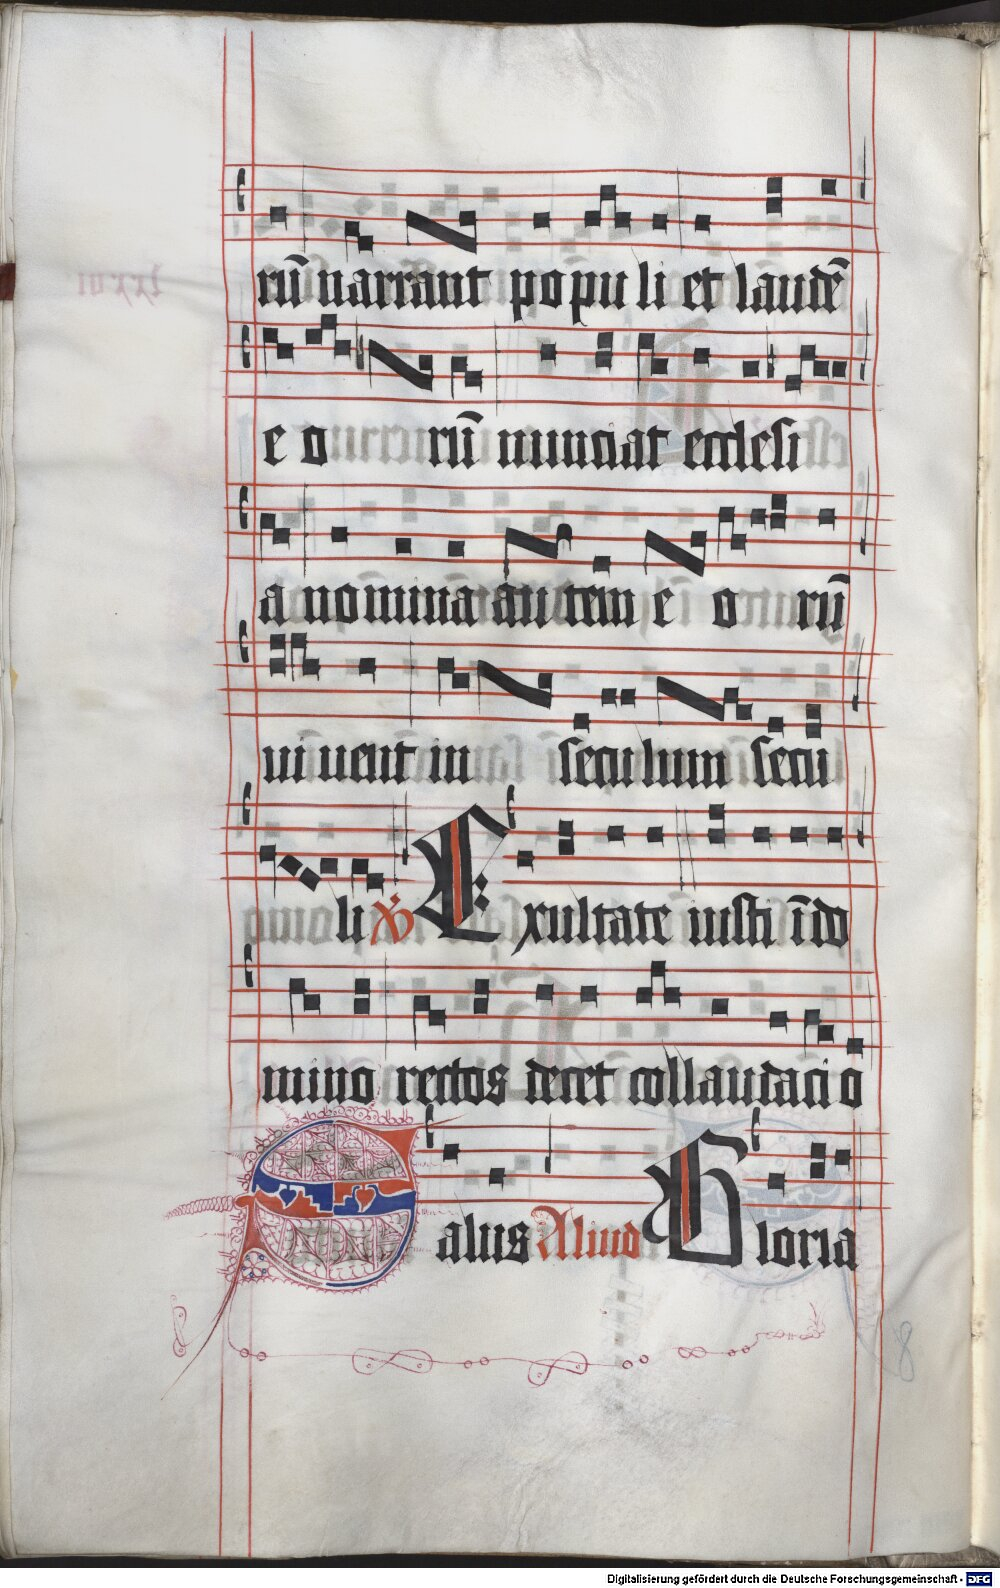 rū narrant populi et laudē
e o rū nunciat ecclesi
a nomina autem e o rū
uiuent in seculum secu
li xp̄ Exultate iusti ī do
mino rectos decet collaudacio
Salus Aliud Gloria
8
Digitalisierung gefördert durch die Deutsche Forschungsgemeinschaft - DFG